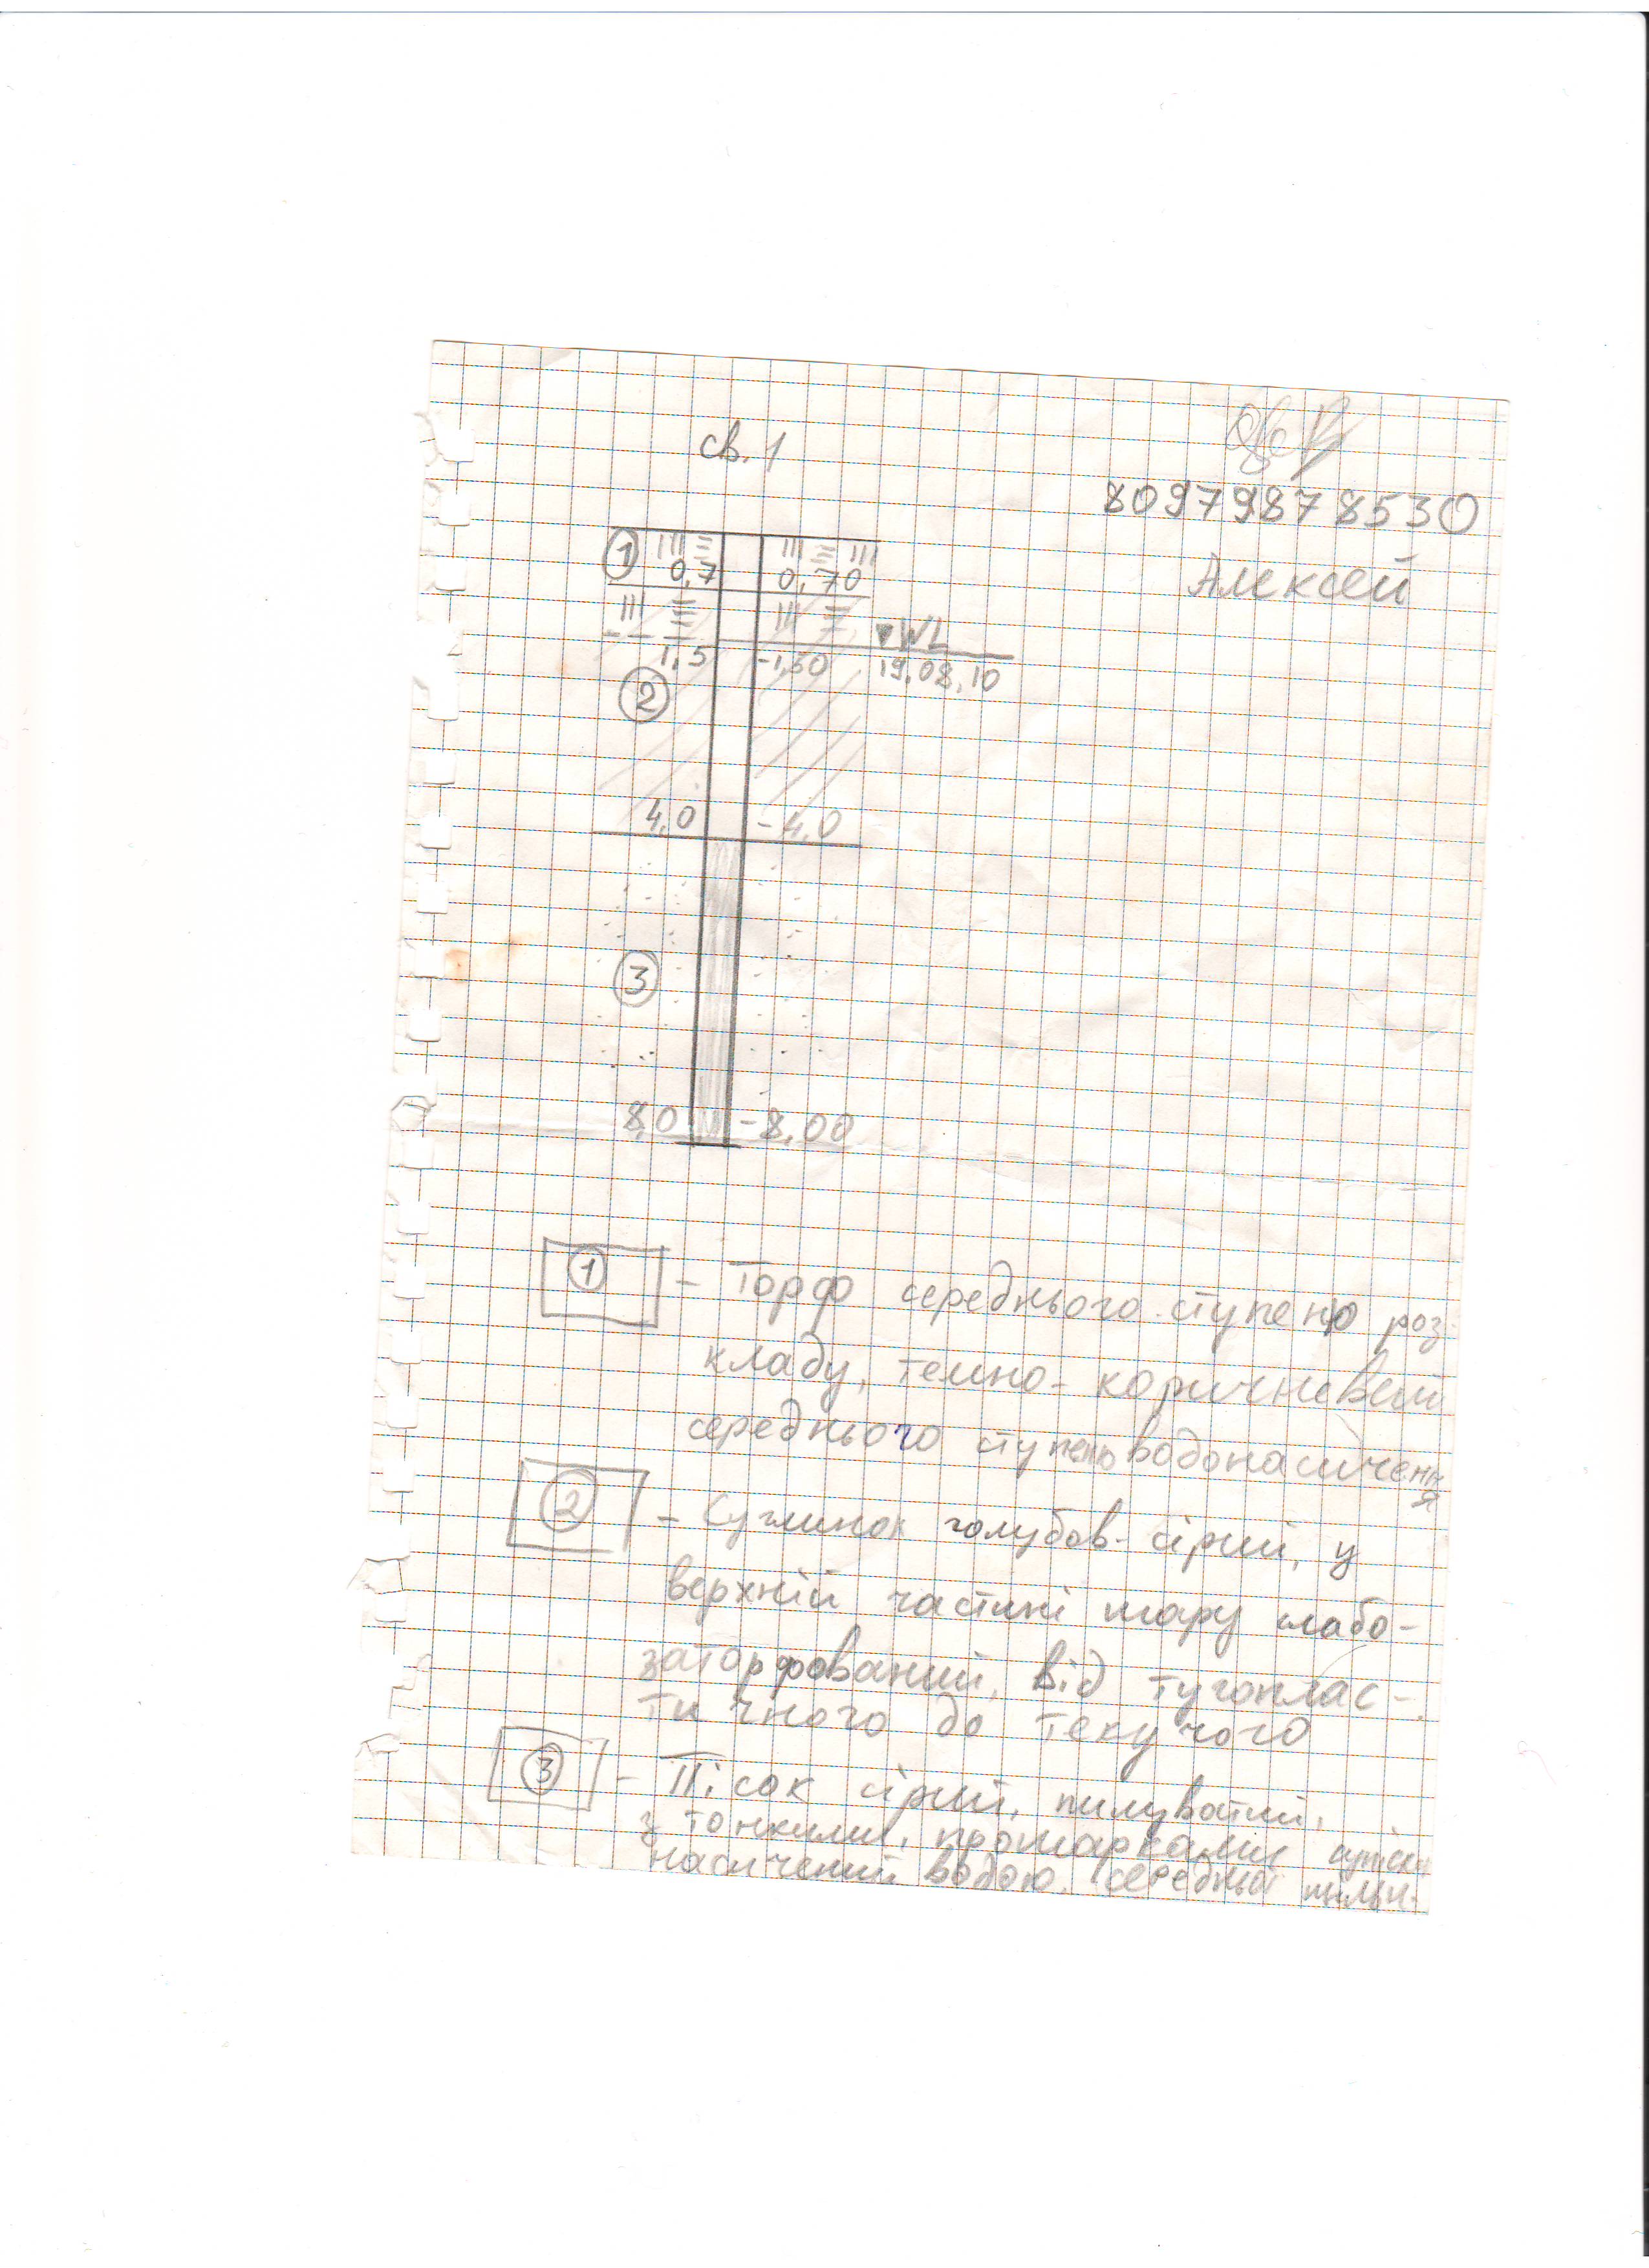 св. 1
80979878530
Алексей
1 0,7 0,70
WL
1,5 -1,50 19.08.10
2
4,0 -4,0
3
8,0 -8,00
1 - Торф середнього ступеню роз-
кладу, темно-коричневый
середнього ступеню водонасичення
2 - Суглинок голубов-сірий, у
верхній частині шару слабо-
заторфований, від тугоплас-
тичного до текучого
3 - Пісок сірий, пилуватий,
з тонкими прошарками супіску
насичений водою, середньої щільн.